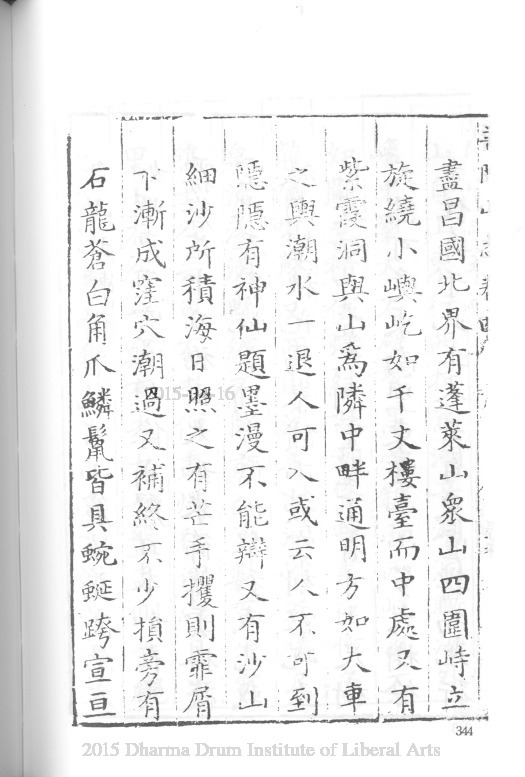 盡昌國北界有蓬萊山衆山四圍峙立
旋繞小嶼屹如千丈樓臺而中處又有
紫霞洞與山爲隣中畔通明方如大車
之輿潮水一退人可入或云人不可到
隱隱有神仙題墨漫不能辯又有沙山
細沙所積海日照之有芒手攫則霏屑
下漸成窪穴潮過又補終不少損旁有
石龍蒼白角爪鱗鬣皆具蜿蜒跨亘
344
2015 Dharma Drum Institute of Liberal Arts